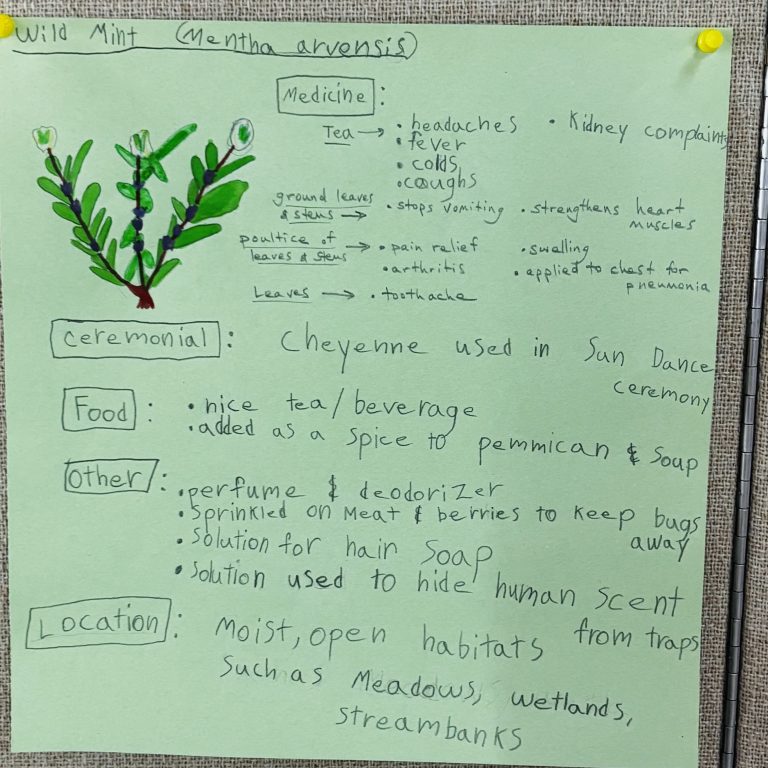 Wild Mint (Mentha arvensis)
Medicine:
Tea → • headaches • Kidney complaints
• fever
• colds
• coughs
ground leaves & stems → • stops vomiting • strengthens heart muscles
poultice of leaves & stems → • pain relief • swelling
• arthritis • applied to chest for pneumonia
Leaves → • toothache
Ceremonial: Cheyenne used in Sun Dance
ceremony
Food: • nice tea/beverage
• added as a spice to pemmican & soup
Other: • perfume & deodorizer
• Sprinkled on Meat & berries to keep bugs
away
• Solution for hair soap
• Solution used to hide human scent
from traps
Location: Moist, open habitats
such as Meadows, wetlands,
streambanks